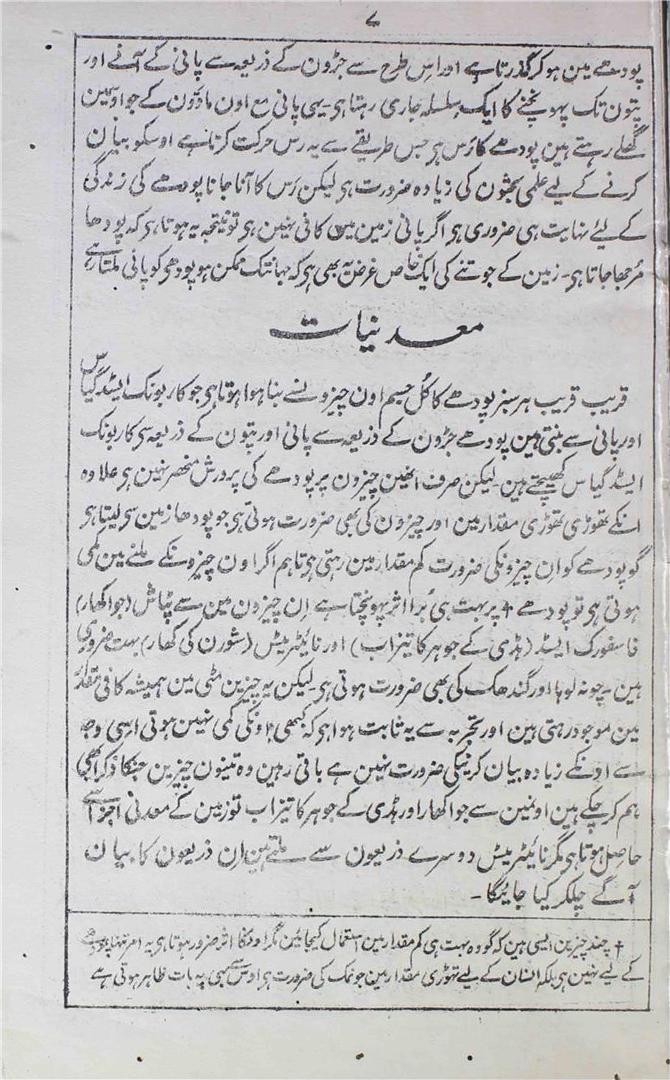 ۷
پودھے مین ہو کر گذرتا ہے اور اس طرح سے جڑون کے ذریعہ سے پانی کے آنے اور
پتون تک پہونچنے کا ایک سلسلہ جاری رہتا ہی۔ یہی پانی مع اون مادّون کے جو اوسمین
گھلے رہتے ہین پودھے کا رَس ہی جس طریقے سے یہ رس حرکت کرتا ہے اوسکو بیان
کرنے کے لیے علمی بحثون کی زیادہ ضرورت ہی لیکن رَس کا آنا جانا پودھے کی زندگی
کے لیے نہایت ہی ضروری ہی اگر پانی زمین مین کافی نہین ہی تو نتیجہ یہ ہوتا ہی کہ پودھا
مُرجھا جاتا ہی۔ زمین کے جوتنے کی ایک خاص غرض یہ بھی ہی کہ جہانتک ممکن ہو پودھی کو پانی ملتا رہے
معدنیات
قریب قریب ہر سبز پودھے کا کُل جسم اون چیزونسے بنا ہوا ہوتا ہی جو کاربونک ایسڈ گیاس
اور پانی سے بنتی ہین پودھے جڑون کے ذریعہ سے پانی اور پتون کے ذریعہ سی کاربونک
ایسڈ گیاس کھینچتے ہین۔ لیکن صرف انھین چیزون پر پودھے کی پرورش منحصر نہین ہی علاوہ
انکے تھوڑی تھوڑی مقدار مین اور چیزون کی بھی ضرورت ہوتی ہی جو پودھا زمین سی لیتا ہی
گو پودھے کو ان چیزونکی ضرورت کم مقدار مین رہتی ہی تاہم اگر اون چیزونکے ملنے مین کمی
ہوتی ہی تو پودھے † پر بہت ہی بُرا اثر پہونچتا ہے ان چیزون مین سے پٹاش (جواکھار)
فاسفورک ایسڈ (ہڈی کے جوہر کا تیزاب) اور نائیٹریٹس (شورن کی کھار) بہت ضروری
ہین۔ چونہ لوہا اور گندھک کی بھی ضرورت ہوتی ہی۔ لیکن یہ چیزین مٹی مین ہمیشہ کافی مقدار
مین موجود رہتی ہین اور تجربہ سے یہ ثابت ہوا ہی کہ کبھی اونکی کمی نہین ہوتی اسی وجہ
سے اونکے زیادہ بیان کرنیکی ضرورت نہین ہے باقی رہین وہ تینون چیزین جنکا ذکر ابھی
ہم کر چکے ہین اونمین سے جواکھار اور ہڈی کے جوہر کا تیزاب تو زمین کے معدنی اجزا سے
حاصل ہوتا ہی مگر نائیٹریٹس دوسرے ذریعون سے ملتے ہین ان ذریعون کا بیان
آگے چلکر کیا جائیگا۔
† چند چیزین ایسی ہین کہ گو وہ بہت ہی کم مقدار مین استعمال کیجائین مگر اونکا اثر ضرور ہوتا ہی یہ امر تنہا پودھے
کے لیے نہین ہی بلکہ انسان کے لیے تھوڑی مقدار مین جو نمک کی ضرورت ہی اوس سے بھی یہ بات ظاہر ہوتی ہے